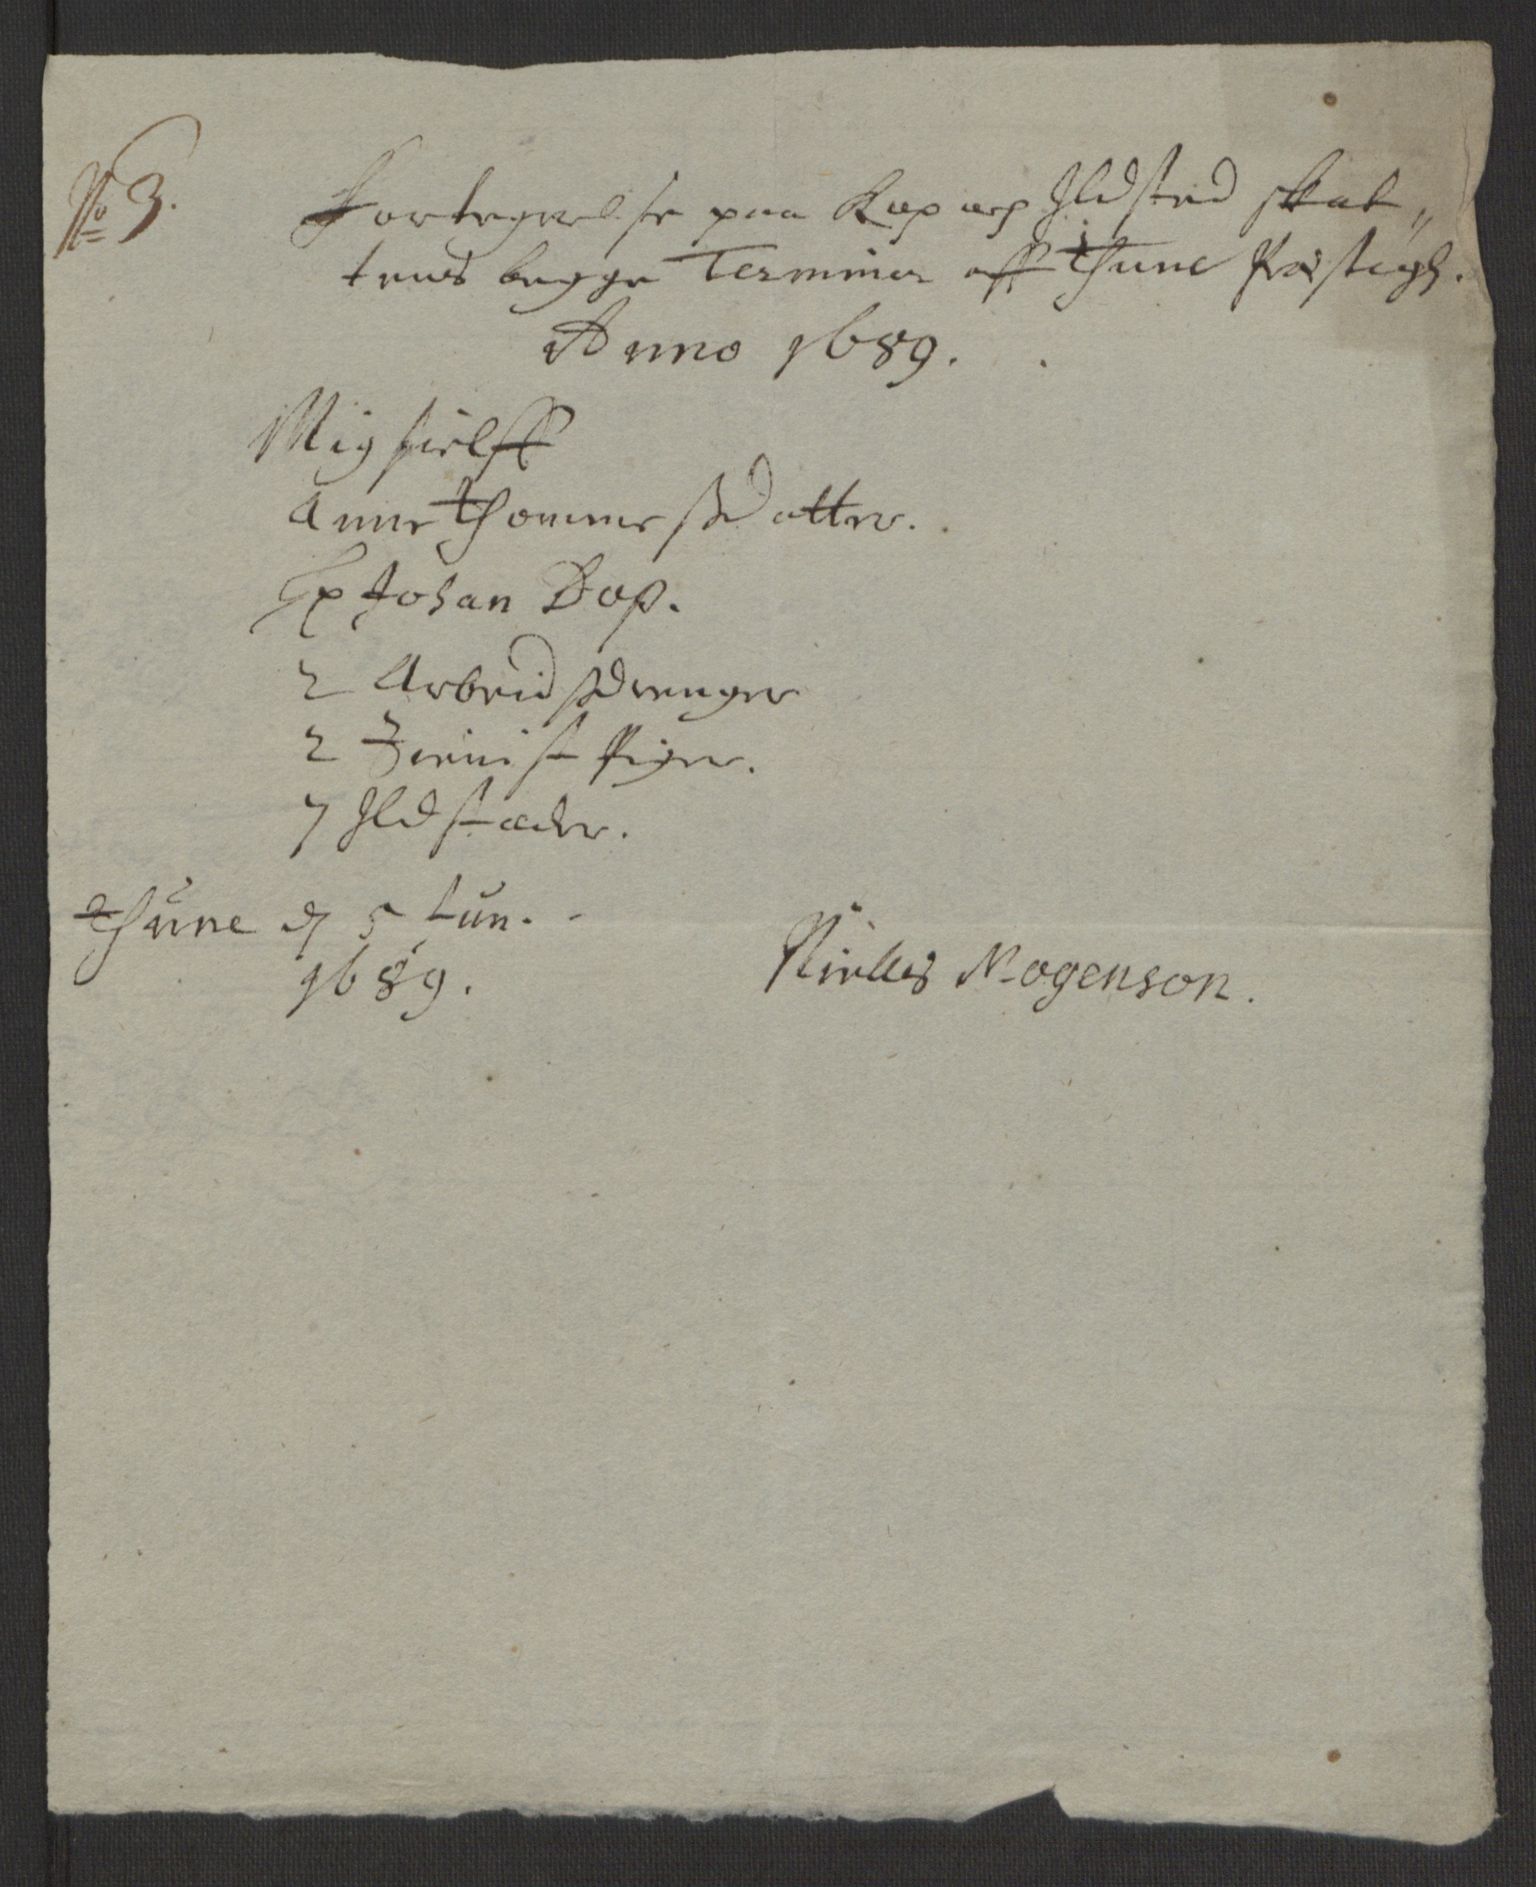 No 3.
Fortegnelse paa Kop og Ildsted skat„
tens begge Terminer aff Thune Præstegld.
Anno 1689.
Mig sielff
Anne Thommesdatter.
Hr Johan Dop.
2 Arbeidsdrenger
2 Tienist Piger.
7 Ildstæder.
Thune d 5 Jun.
1689.
Nielles Mogenson.